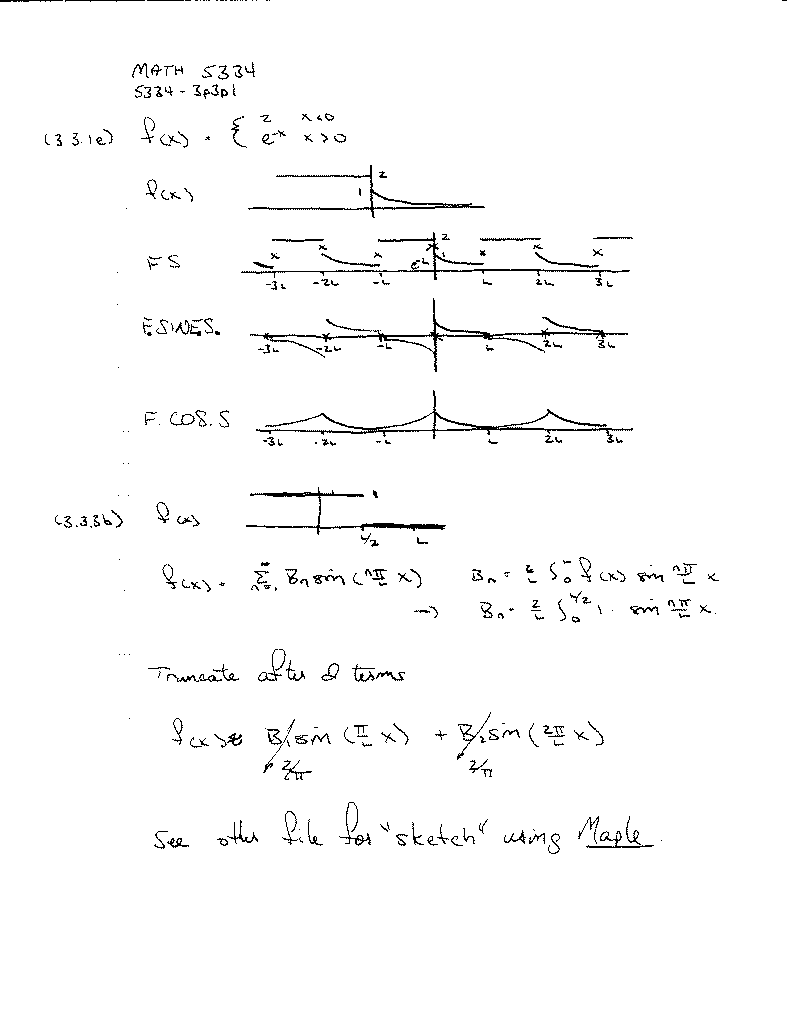 MATH 5334
5334 - 3p3p1
(3.3.1e) f(x) = { 2 x<0
e^-x x>0
f(x) 1 2
FS e^-L 1 2
-3L -2L -L L 2L 3L
F. SINE S.
-3L -2L -L L 2L 3L
F. COS. S
-3L -2L -L L 2L 3L
(3.3.3b) f(x) 1
L/2 L
f(x) = ∑ n=1 ∞ Bn sin (nπ/L x) Bn = 2/L ∫0^L f(x) sin nπ/L x
→ Bn = 2/L ∫0^L/2 1 · sin nπ/L x.
Truncate after 2 terms
f(x) ≈ B1 sin (π/L x) + B2 sin (2π/L x)
2/π 2/π
See other file for "sketch" using Maple.